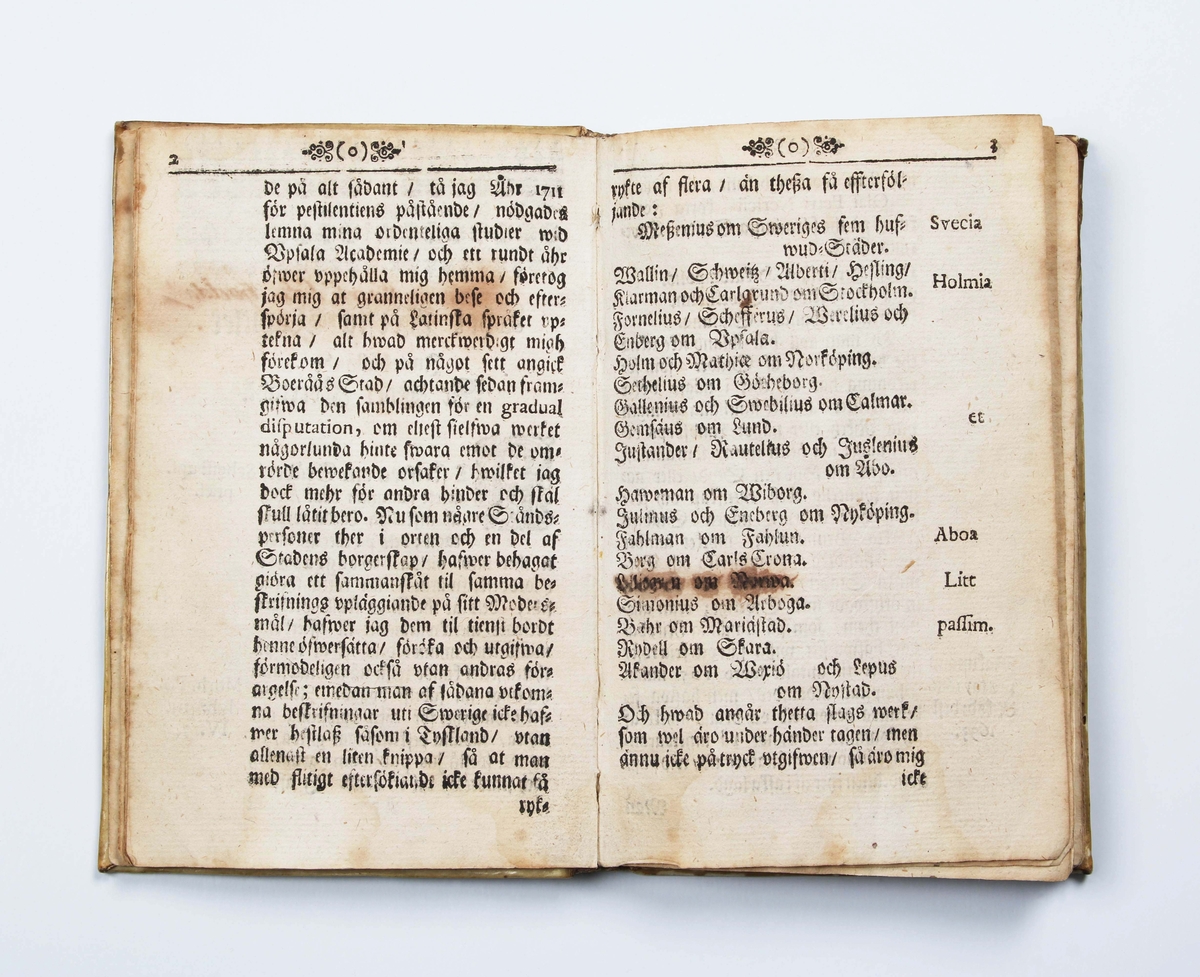 2
(o)
de på alt sådant / tå jag Åhr 1711
för pestilentiens påstående / nödgades
lemna mina ordenteliga studier wid
Vpsala Academie / och ett rundt åhr
öfwer vppehålla mig hemma / företog
jag mig at granneligen bese och efter-
spörja / samt på Latinska språket vp-
tekna / alt hwad merckwerdigt migh
förekom / och på något sett angick
Boeråås Stad / achtande sedan fram-
gifwa den samblingen för en gradual
disputation, om eliest sielfwa werket
någorlunda hinte swara emot de om-
rörde bewekande orsaker / hwilket jag
dock mehr för andra hinder och skäl
skull låtit bero. Nu som någre Stånds-
personer ther i orten och en del af
Stadens borgerskap / hafwer behagat
giöra ett sammanskåt til samma be-
skrifnings vpläggiande på sitt Moders-
mål / hafwer jag dem til tienst bordt
henne öfwersätta / föröka och utgifwa /
förmodeligen också vtan andras för-
argelse; emedan man af sådana vtkom-
na beskrifningar uti Swerige icke haf-
wer bestlaß såsom i Tyskland / vtan
allenast en liten knippa / så at man
med flitigt eftersökiande icke kunnat få
ryk-
3
(o)
rykte af flera / än theßa få effterföl-
jande :
Meßenius om Sweriges fem huf-
wud-Städer.
Svecia
Wallin / Schweitz / Alberti / Hesling /
Klarman och Carlgrund om Stockholm.
Holmia
Fornelius / Schefferus / Werelius och
Enberg om Vpsala.
Holm och Mathiæ om Norköping.
Sethelius om Götheborg.
Gallenius och Swebilius om Calmar.
et
Gemsäus om Lund.
Justander / Rautelius och Juslenius
om Åbo.
Haweman om Wiborg.
Julinus och Eneberg om Nyköping.
Fahlman om Fahlun.
Aboa
Berg om Carls Crona.
om Narwa.
Litt
Simonius om Arboga.
Bahr om Mariästad.
passim.
Rydell om Skara.
Akander om Wexiö och Lepus
om Nystad.
Och hwad angår thetta slags werk /
som wel äro under händer tagen / men
ännu icke på tryck vtgifwen / så äro mig
icke